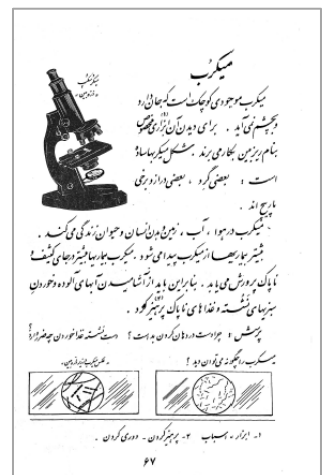 میکرب
میکرسکپ
«ذره‌بین»
میکرب موجودی کوچک است که جان دارد
و بچشم نمی‌آید . برای دیدن آن ابزاری مخصوص
بنام ریزبین بکار می‌برند . شکل میکربها ساده
است : بعضی گرد ، بعضی دراز و برخی
مارپیچ اند .
میکرب در هوا ، آب ، زمین و بدن انسان و حیوان زندگی می کند .
بیشتر بیماریها از میکرب پیدا می شود . میکرب بیماریها بیشتر در جای کثیف و
ناپاک پرورش می یابد . بنابراین باید از آشامیدن آبهای آلوده و خوردن
سبزیهای نشسته و غذاهای ناپاک پرهیز کرد .
پرسش : چرا دست در دهان کردن بد است ؟ دست نشسته غذا خوردن چه ضرر دارد ؟
میکرب را چگونه می توان دید ؟
۱- ابزار - اسباب ۲- پرهیز کردن - دوری کردن .
۶۷